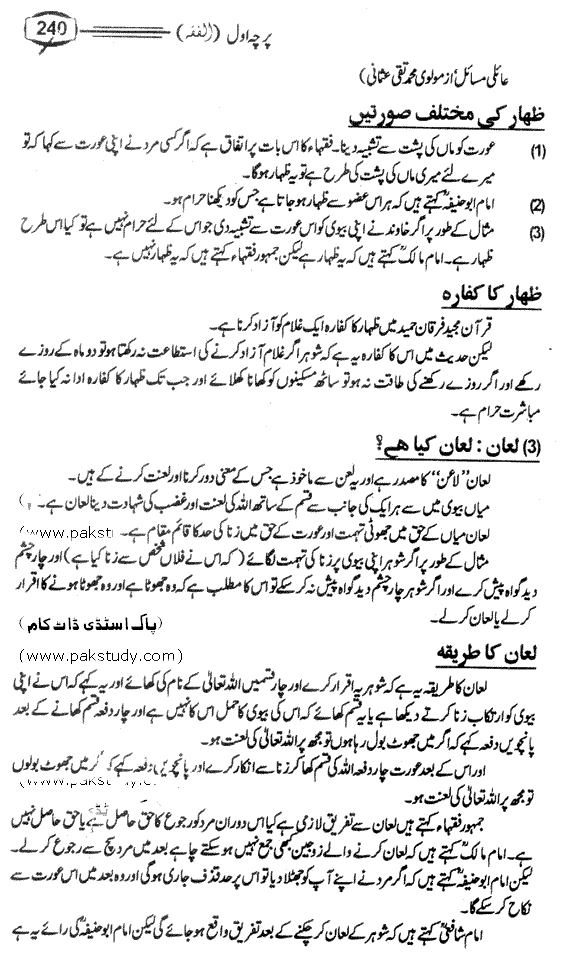 240
پرچہ اول (الفقہ)
عائلی مسائل از مولوی محمد تقی عثمانی)
ظہار کی مختلف صورتیں
(1) عورت کو ماں کی پشت سے تشبیہ دینا۔ فقہاء کا اس بات پر اتفاق ہے کہ اگر کسی مرد نے اپنی عورت سے کہا کہ تو
میرے لئے میری ماں کی پشت کی طرح ہے تو یہ ظہار ہوگا۔
(2) امام ابوحنیفہؒ کہتے ہیں کہ ہر اس عضو سے ظہار ہو جاتا ہے جس کو دیکھنا حرام ہو۔
(3) مثال کے طور پر اگر خاوند نے اپنی بیوی کو اس عورت سے تشبیہ دی جو اس کے لئے حرام نہیں ہے تو کیا اس طرح
ظہار ہے۔ امام مالکؒ کہتے ہیں کہ یہ ظہار ہے لیکن جمہور فقہاء کہتے ہیں کہ یہ ظہار نہیں ہے۔
ظہار کا کفارہ
قرآن مجید فرقان حمید میں ظہار کا کفارہ ایک غلام کو آزاد کرنا ہے۔
لیکن حدیث میں اس کا کفارہ یہ ہے کہ شوہر اگر غلام آزاد کرنے کی استطاعت نہ رکھتا ہو تو دو ماہ کے روزے
رکھے اور اگر روزے رکھنے کی طاقت نہ ہو تو ساٹھ مسکینوں کو کھانا کھلائے اور جب تک ظہار کا کفارہ ادا نہ کیا جائے
مباشرت حرام ہے۔
(3) لعان : لعان کیا ھے؟
لعان "لاعن" کا مصدر ہے اور یہ لعن سے ماخوذ ہے جس کے معنی دور کرنا اور لعنت کرنے کے ہیں۔
میاں بیوی میں سے ہر ایک کی جانب سے قسم کے ساتھ اللہ کی لعنت اور غضب کی شہادت دینا لعان ہے۔
لعان میاں کے حق میں جھوٹی تہمت اور عورت کے حق میں زنا کی حد کا قائم مقام ہے۔ (www.pakst
مثال کے طور پر اگر شوہر اپنی بیوی پر زنا کی تہمت لگائے (کہ اس نے فلاں شخص سے زنا کیا ہے) اور چار چشم
دید گواہ پیش کرے اور اگر شوہر چار چشم دید گواہ پیش نہ کر سکے تو اس کا مطلب ہے کہ وہ جھوٹا ہے اور وہ جھوٹا ہونے کا اقرار
کرلے یا لعان کرلے۔ (پاک اسٹڈی ڈاٹ کام)
لعان کا طریقہ (www.pakstudy.com)
لعان کا طریقہ یہ ہے کہ شوہر یہ اقرار کرے اور چار قسمیں اللہ تعالیٰ کے نام کی کھائے اور یہ کہے کہ اس نے اپنی
بیوی کو ارتکاب زنا کرتے دیکھا ہے یا یہ قسم کھائے کہ اس کی بیوی کا حمل اس کا نہیں ہے اور چار دفعہ قسم کھانے کے بعد
پانچویں دفعہ کہے کہ اگر میں جھوٹ بول رہا ہوں تو مجھ پر اللہ تعالیٰ کی لعنت ہو۔
اور اس کے بعد عورت چار دفعہ اللہ کی قسم کھا کر زنا سے انکار کرے اور پانچویں دفعہ کہے کہ میں جھوٹ بولوں
تو مجھ پر اللہ تعالیٰ کی لعنت ہو۔ (www.pakstudy.c
جمہور فقہاء کہتے ہیں لعان سے تفریق لازمی ہے کیا اس دوران مرد کو رجوع کا حق حاصل ہے یا حق حاصل نہیں
ہے۔ امام مالکؒ کہتے ہیں کہ لعان کرنے والے زوجین کبھی جمع نہیں ہو سکتے چاہے بعد میں مرد سچ سے رجوع کرلے۔
لیکن امام ابوحنیفہؒ کہتے ہیں کہ اگر مرد نے اپنے آپ کو جھٹلا دیا تو اس پر حد قذف جاری ہوگی اور وہ بعد میں اس عورت سے
نکاح کرسکے گا۔
امام شافعیؒ کہتے ہیں کہ شوہر کے لعان کر چکنے کے بعد تفریق واقع ہو جائے گی لیکن امام ابوحنیفہؒ کی رائے یہ ہے